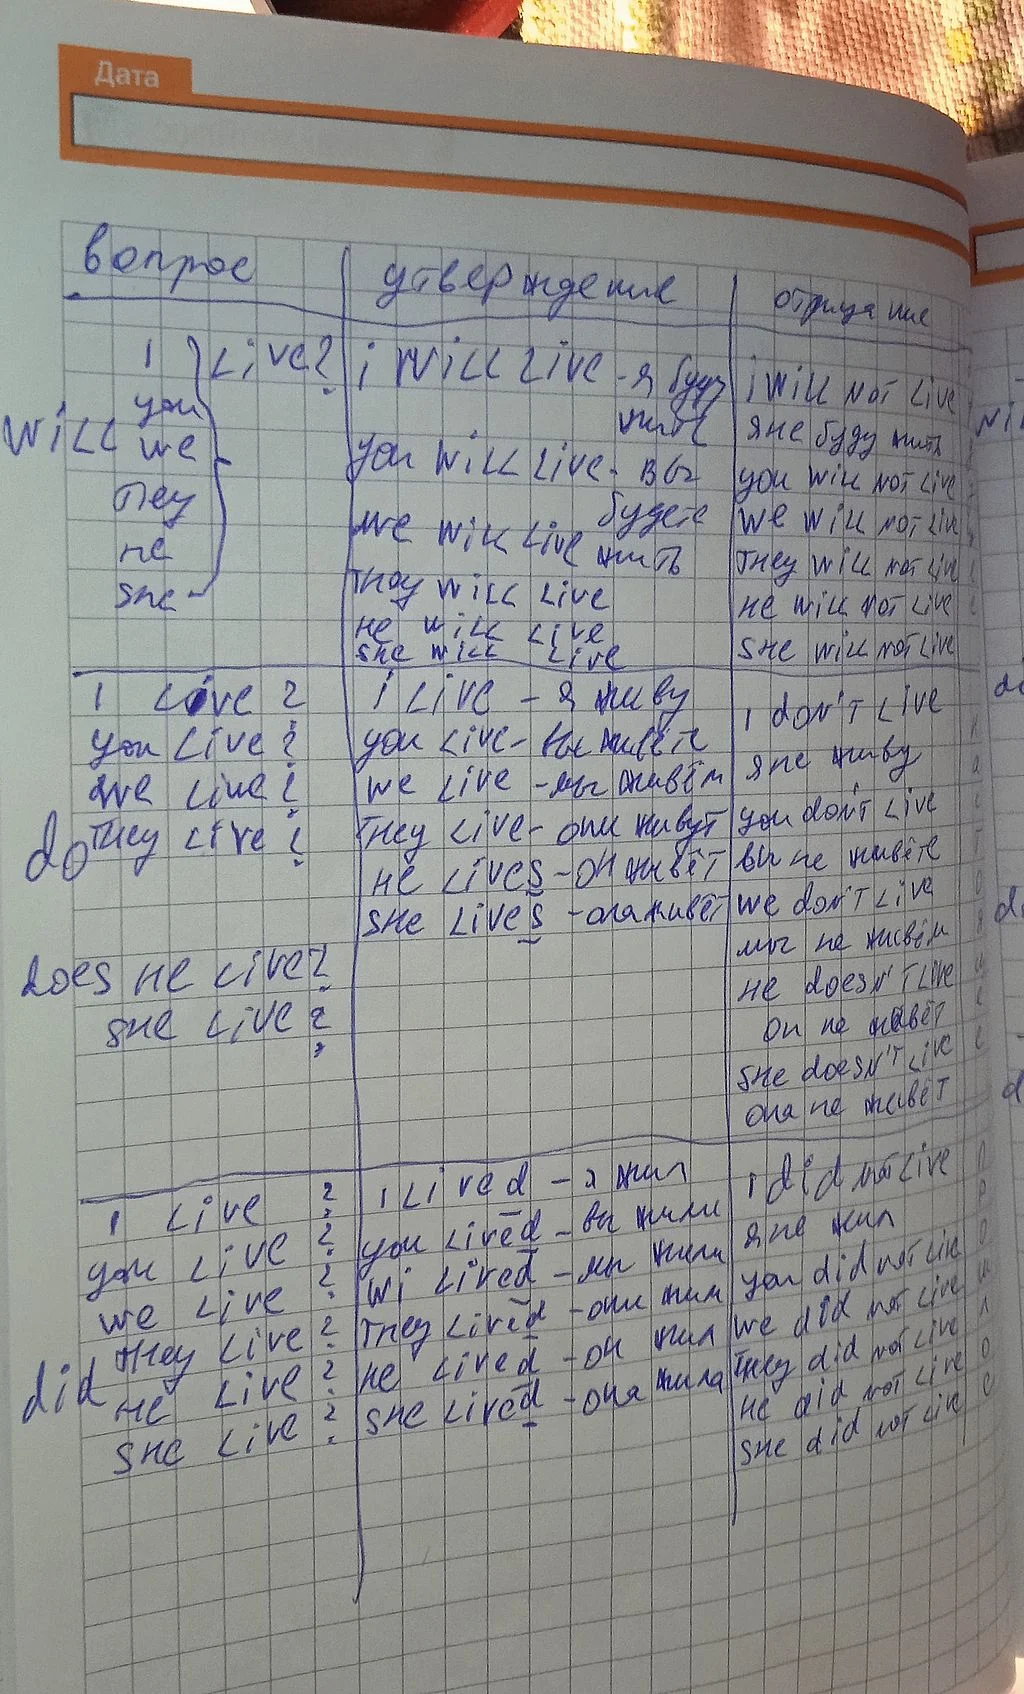 Дата
вопрос утверждение отрицание
Will
I live?
you
we
They
He
she
i will live - я буду
жить
you will live - вы
будете
we will live жить
They will live
He will live
she will live
i will not live
я не буду жить
you will not live
we will not live
They will not live
He will not live
she will not live
do
I live?
you live?
we live?
They live?
Does He live?
she live?
i live - я живу
you live - вы живёте
we live - мы живём
They live - они живут
He lives - он живёт
she lives - она живёт
I don't live
я не живу
you don't live
вы не живёте
we don't live
мы не живём
He doesn't live
он не живёт
she doesn't live
она не живёт
did
I live?
you live?
we live?
They live?
He live?
she live?
I lived - я жил
you lived - вы жили
wi lived - мы жили
They lived - они жили
He lived - он жил
she lived - она жила
I did not live
я не жил
you did not live
we did not live
They did not live
He did not live
she did not live